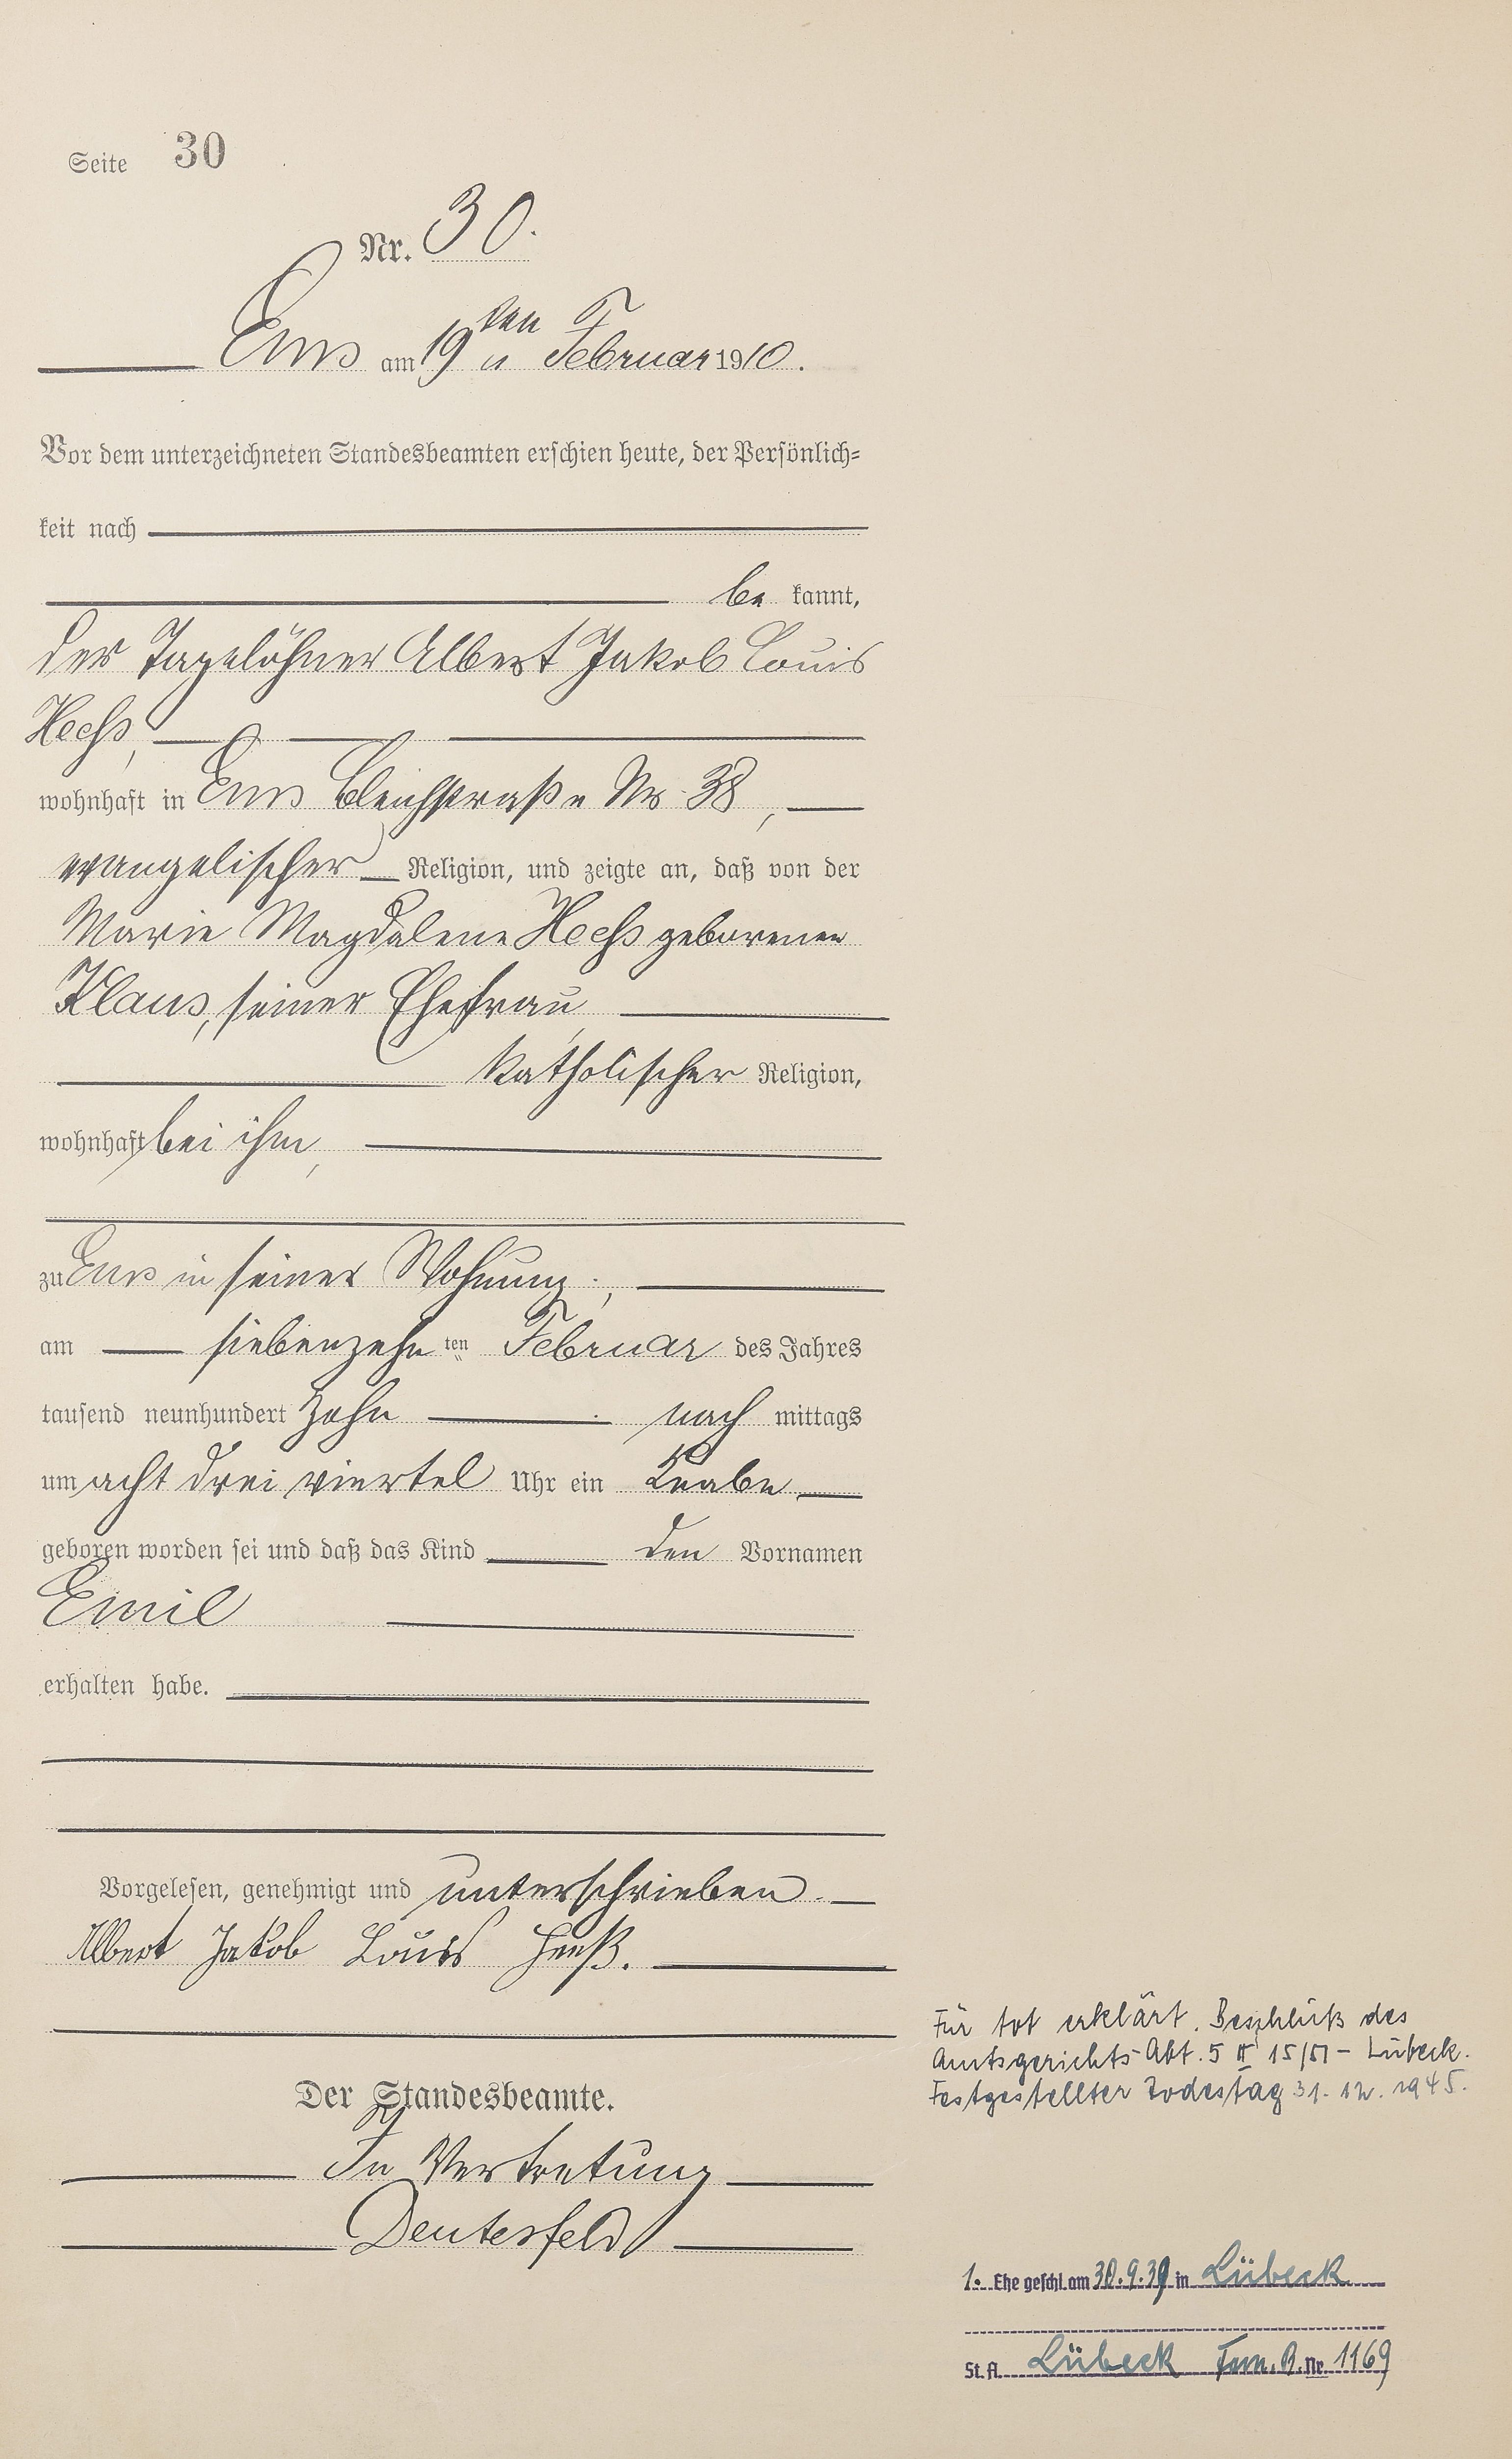 Seite 30
Nr. 30.
Ems am 19ten Februar 1910.
Vor dem unterzeichneten Standesbeamten erschien heute, der Persönlich-
keit nach
be kannt,
der Tagelöhner Albert Jakob Louis
Heeß,
wohnhaft in Ems Bleichstraße Nr. 38,
evangelischer Religion, und zeigte an, daß von der
Marie Magdalene Heeß geborenen
Klaus, seiner Ehefrau,
katholischer Religion,
wohnhaft bei ihm,
zu Ems in seiner Wohnung,
am siebenzehnten Februar des Jahres
tausend neunhundert zehn nach mittags
um acht drei viertel Uhr ein Knabe
geboren worden sei und daß das Kind den Vornamen
Emil
erhalten habe.
Vorgelesen, genehmigt und unterschrieben.
Albert Jakob Louis Heeß.
Der Standesbeamte.
In Vertretung
Deutesfeld
Für tot erklärt. Beschluß des
Amtsgerichts Abt. 5 II 15/51 - Lübeck.
Festgestellter Todestag 31. 12. 1945.
1. Ehe geschl. am 30.9.39 in Lübeck
St. A. Lübeck Fam. B. Nr. 1169